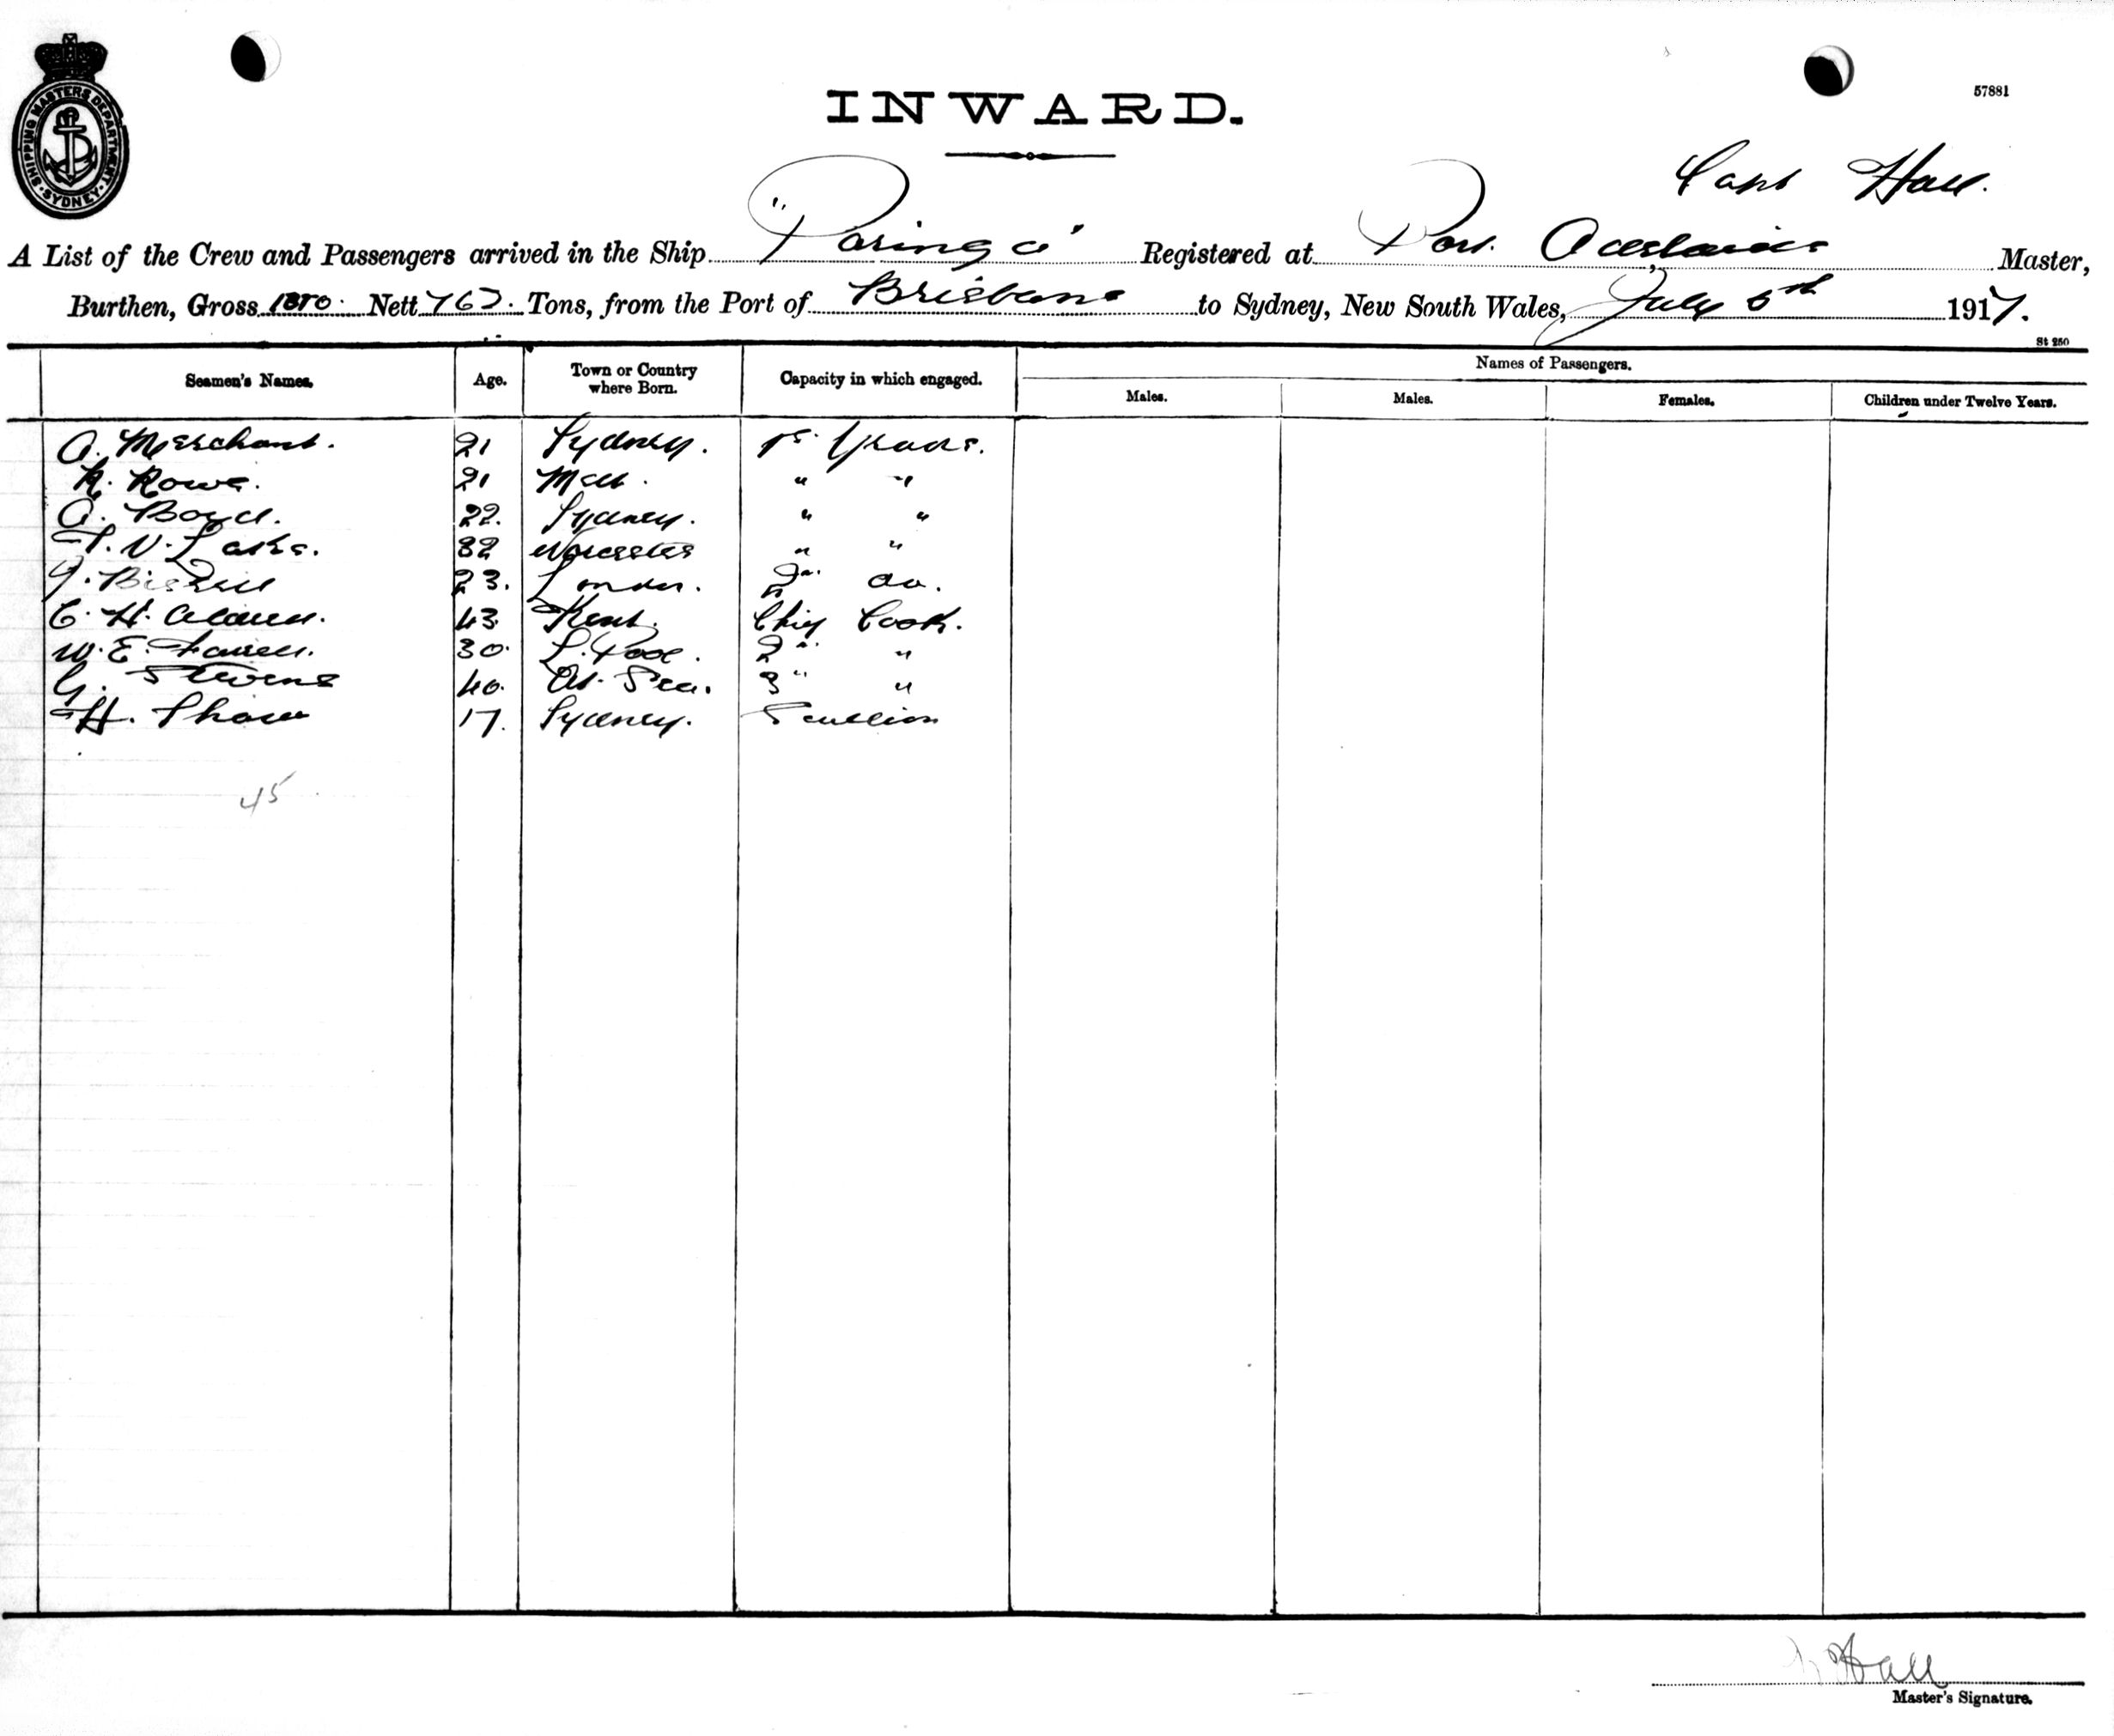 SHIPPING MASTERS DEPARTMENT · SYDNEY ·
57881
INWARD.
Capt Hall.
A List of the Crew and Passengers arrived in the Ship "Paringa" Registered at Port Adelaide Master,
Burthen, Gross Nett 762. Tons, from the Port of Brisbane to Sydney, New South Wales, July 5th 1917.
St 250
Seamen's Names. Age. Town or Country where Born. Capacity in which engaged. Names of Passengers.
Males. Males. Females. Children under Twelve Years.
A. Merchant. 21 Sydney. 1st Grade.
R. Rowe. 21 Melb. " "
A. Boyd. 22. Sydney. " "
T. V. Lake. 32 Worcester " "
23. London. 2nd do.
C. H. 43 Kent. Chief Cook.
W. E. Farrell. 30. L. Pool. 2nd "
G. Stevens 40. At Sea. 3rd "
H. Shaw 17. Sydney. Scullion
45
Hall
Master's Signature.